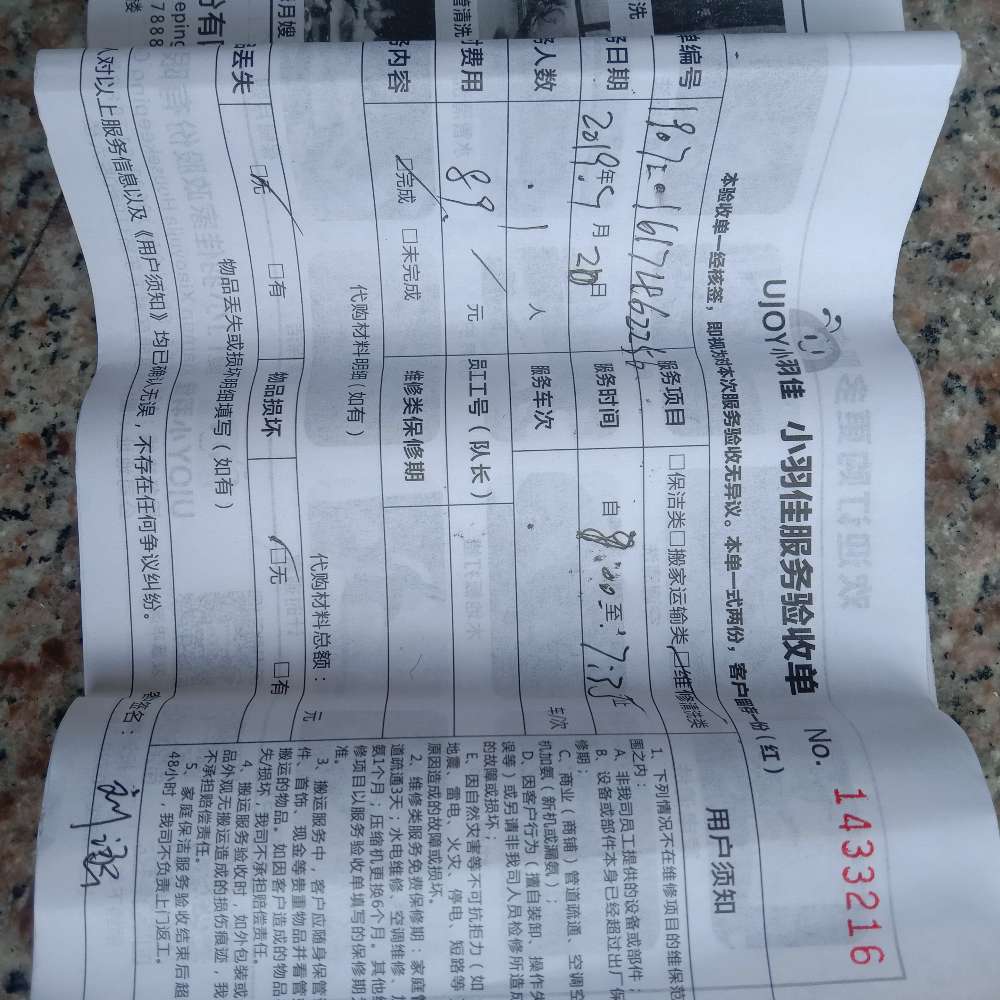 UJOY小羽佳 小羽佳服务验收单 No. 1433216
本验收单一经核签，即视为对本次服务验收无异议。本单一式两份，客户留存一份（红）
单编号
服务项目 □保洁类□搬家运输类☑维修清洗类
务日期 2019年5月20日 服务时间 自 至 7:30止
务人数 1 人 服务车次 车次
费用 89 元 员工工号（队长）
务内容 ☑完成 □未完成 维修类保修期
代购材料明细（如有） 代购材料总额： 元
丢失 ☑无 □有 物品损坏 ☑无 □有
物品丢失或损坏明细填写（如有）
人对以上服务信息以及《用户须知》均已确认无误，不存在任何争议纠纷。
签名：
用户须知
1、下列情况不在维修项目的维保范
围之内：
A、非我司员工提供的设备或部件；
B、设备或部件本身已经超过出厂保
修期；
C、商业（商铺）管道疏通、空调空
机加氨（新机或漏氨）；
D、因客户行为（擅自装卸、操作失
误等）或另请非我司人员检修所造成
的故障或损坏；
E、因自然灾害等不可抗拒力（如
地震、雷电、火灾、停电、短路等
原因造成的故障或损坏。
2、维修类服务免费保修期：家庭管
道疏通3天；水电维修、空调维修、加
氨1个月；压缩机更换6个月。其他维
修项目以服务验收单填写的保修期为
准。
3、搬运服务中，客户应随身保管
件、首饰、现金等贵重物品并看管
搬运的物品。如因客户造成的物品
失/损坏，我司不承担赔偿责任。
4、搬运服务验收时，如外包装或
品外观无搬运造成的损伤痕迹，我
不承担赔偿责任。
5、家庭保洁服务验收结束后超
48小时，我司不负责上门返工。
月嫂
管清洗
洗
份有
7888
楼